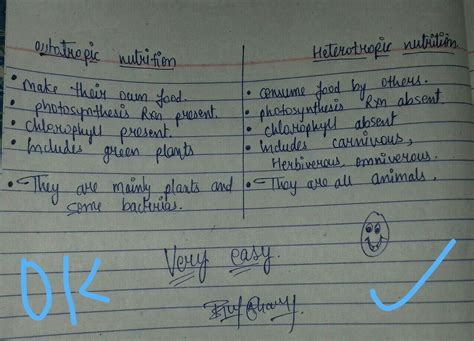 autotropic nutrition
Heterotropic nutrition
• Make their own food.
• photosynthesis Rxn present.
• chlorophyll present.
• Includes green plants
• They are mainly plants and
some bacterias.
• consume food by others.
• photosynthesis Rxn absent
• chlorophyll absent
• Includes carnivous,
Herbiverous, omniverous.
• They are all animals,
Very easy
OK